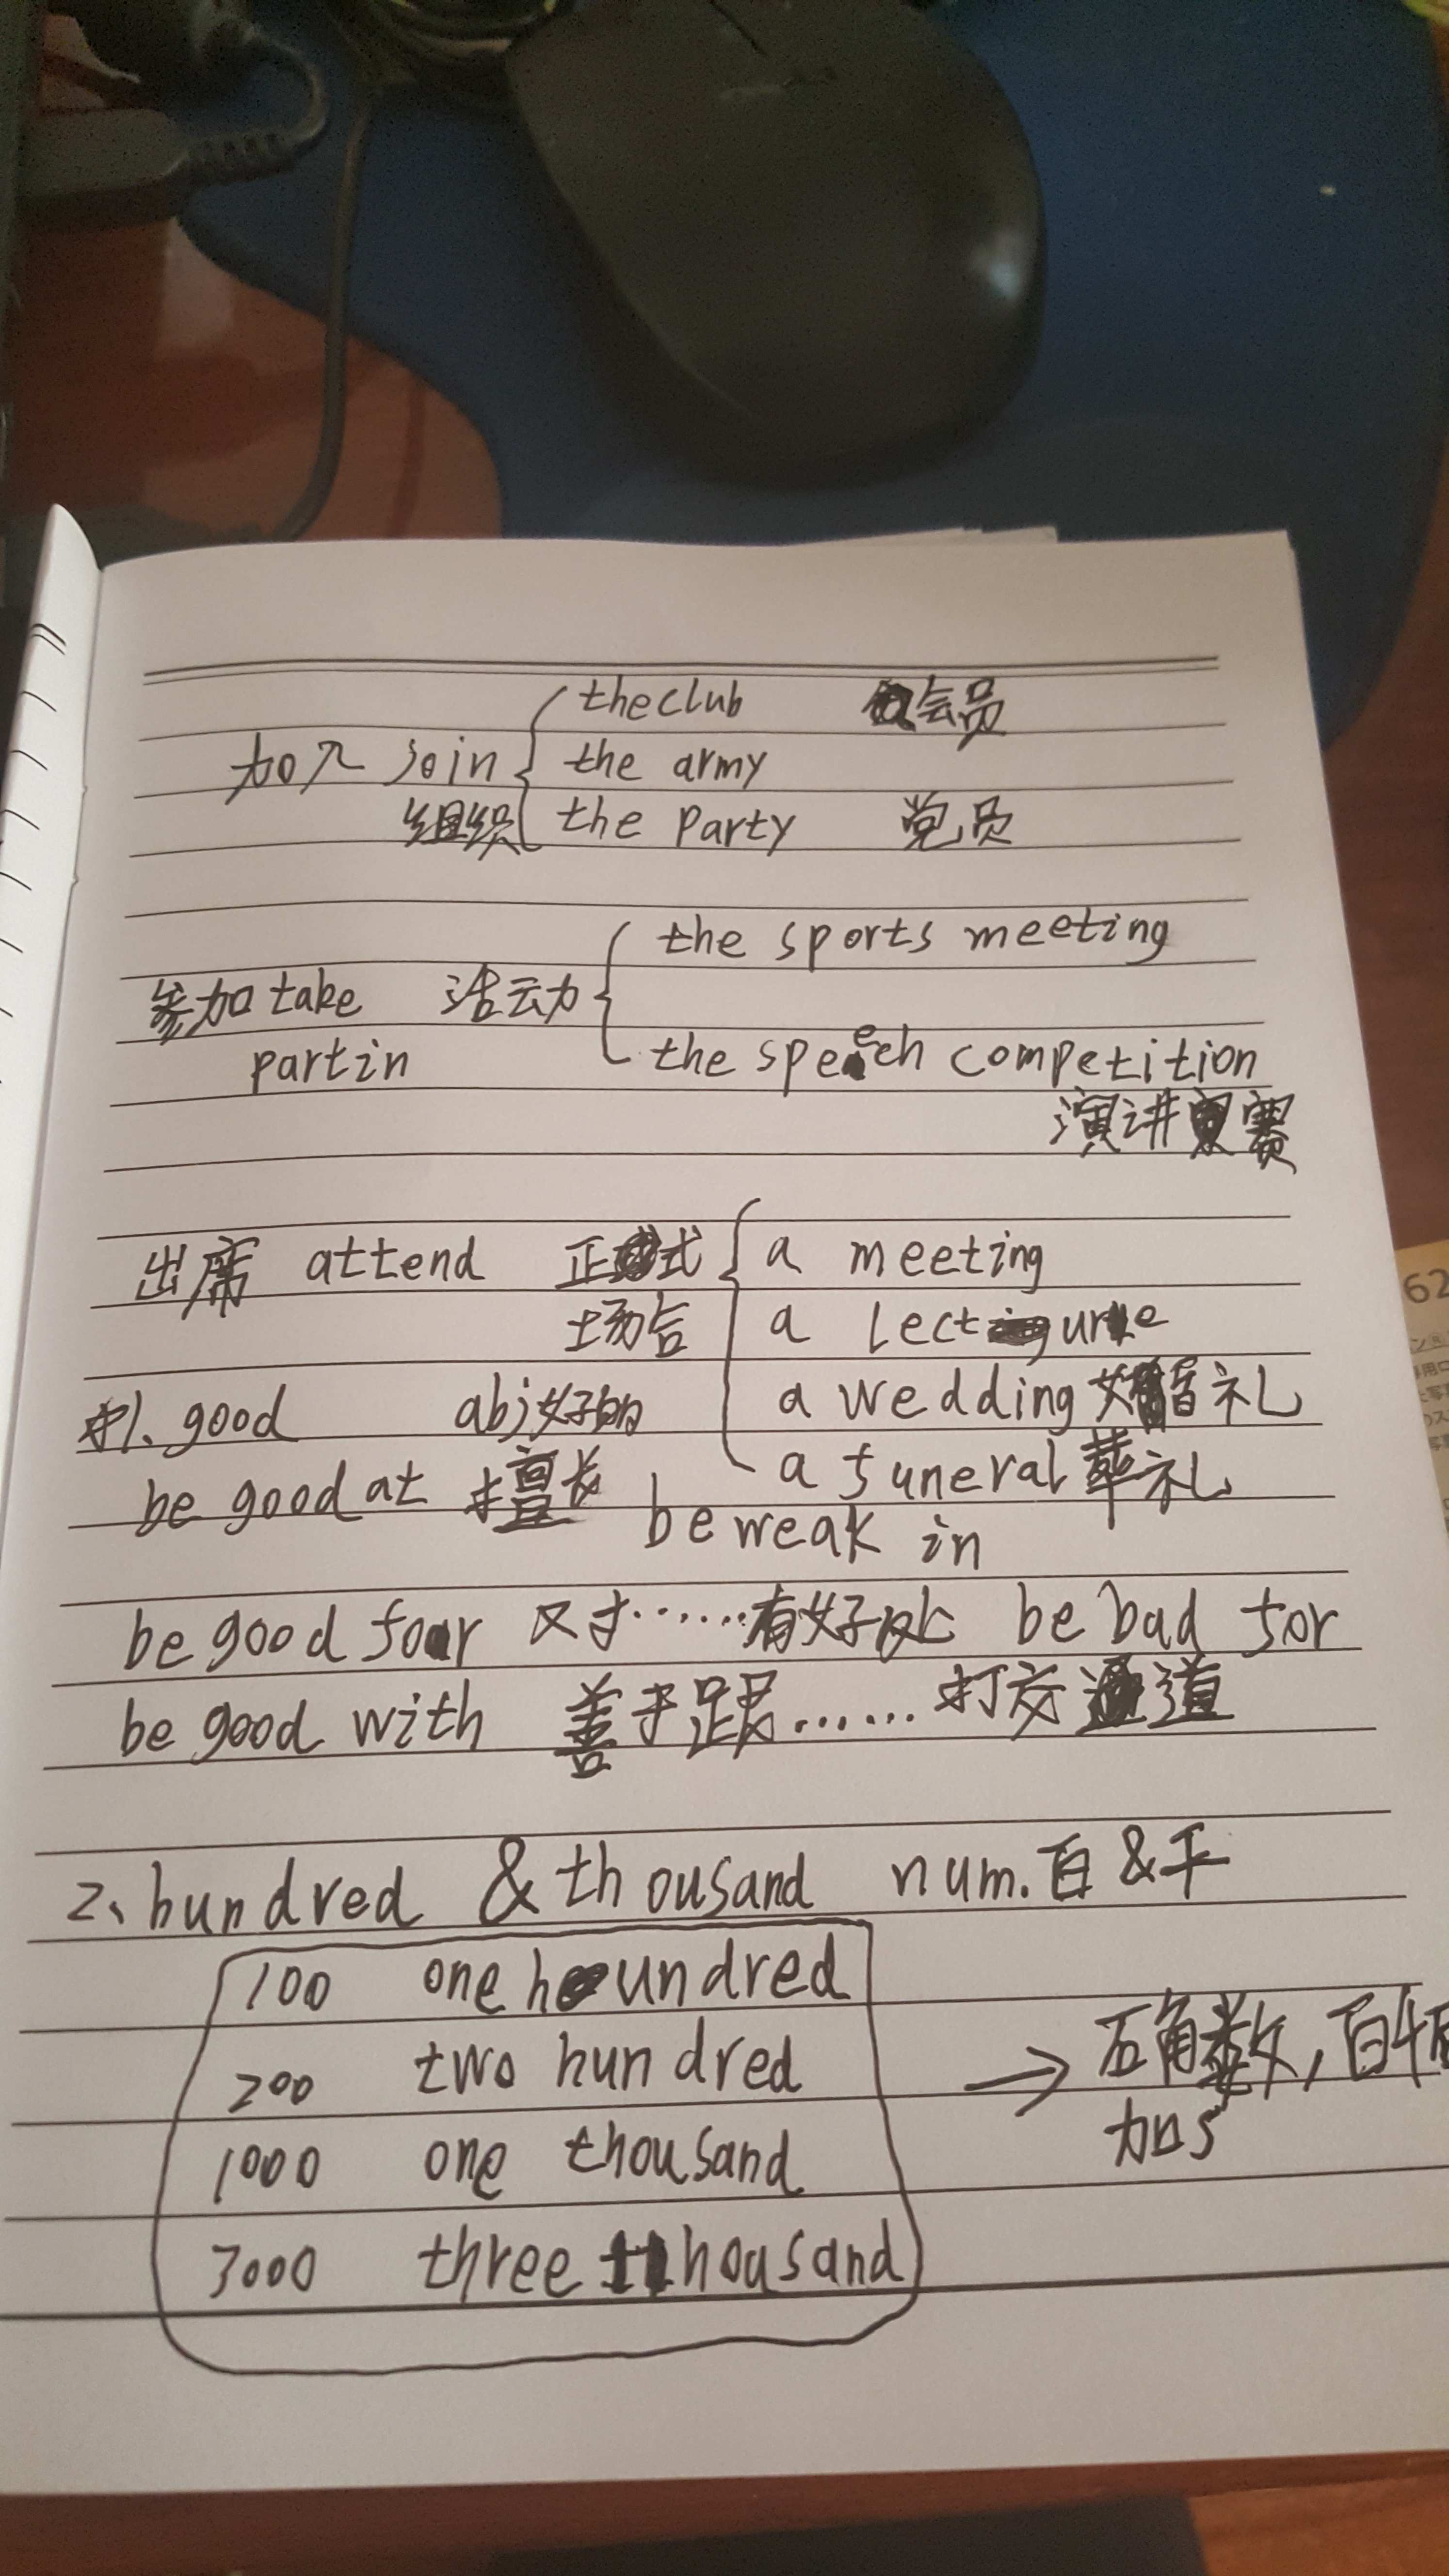 the club 会员
加入 join the army
组织 the party 党员
the sports meeting
参加 take 活动
part in the speech competition
演讲 赛
出席 attend 正式 a meeting
场合 a lecture
1、good abj 好的 a wedding 婚礼
be good at 擅长 a funeral 葬礼
be weak in
be good for 对……有好处 be bad for
be good with 善于跟……打交道
2、hundred & thousand num. 百&千
100 one hundred
200 two hundred
1000 one thousand
3000 three thousand
数,百千
加s
62